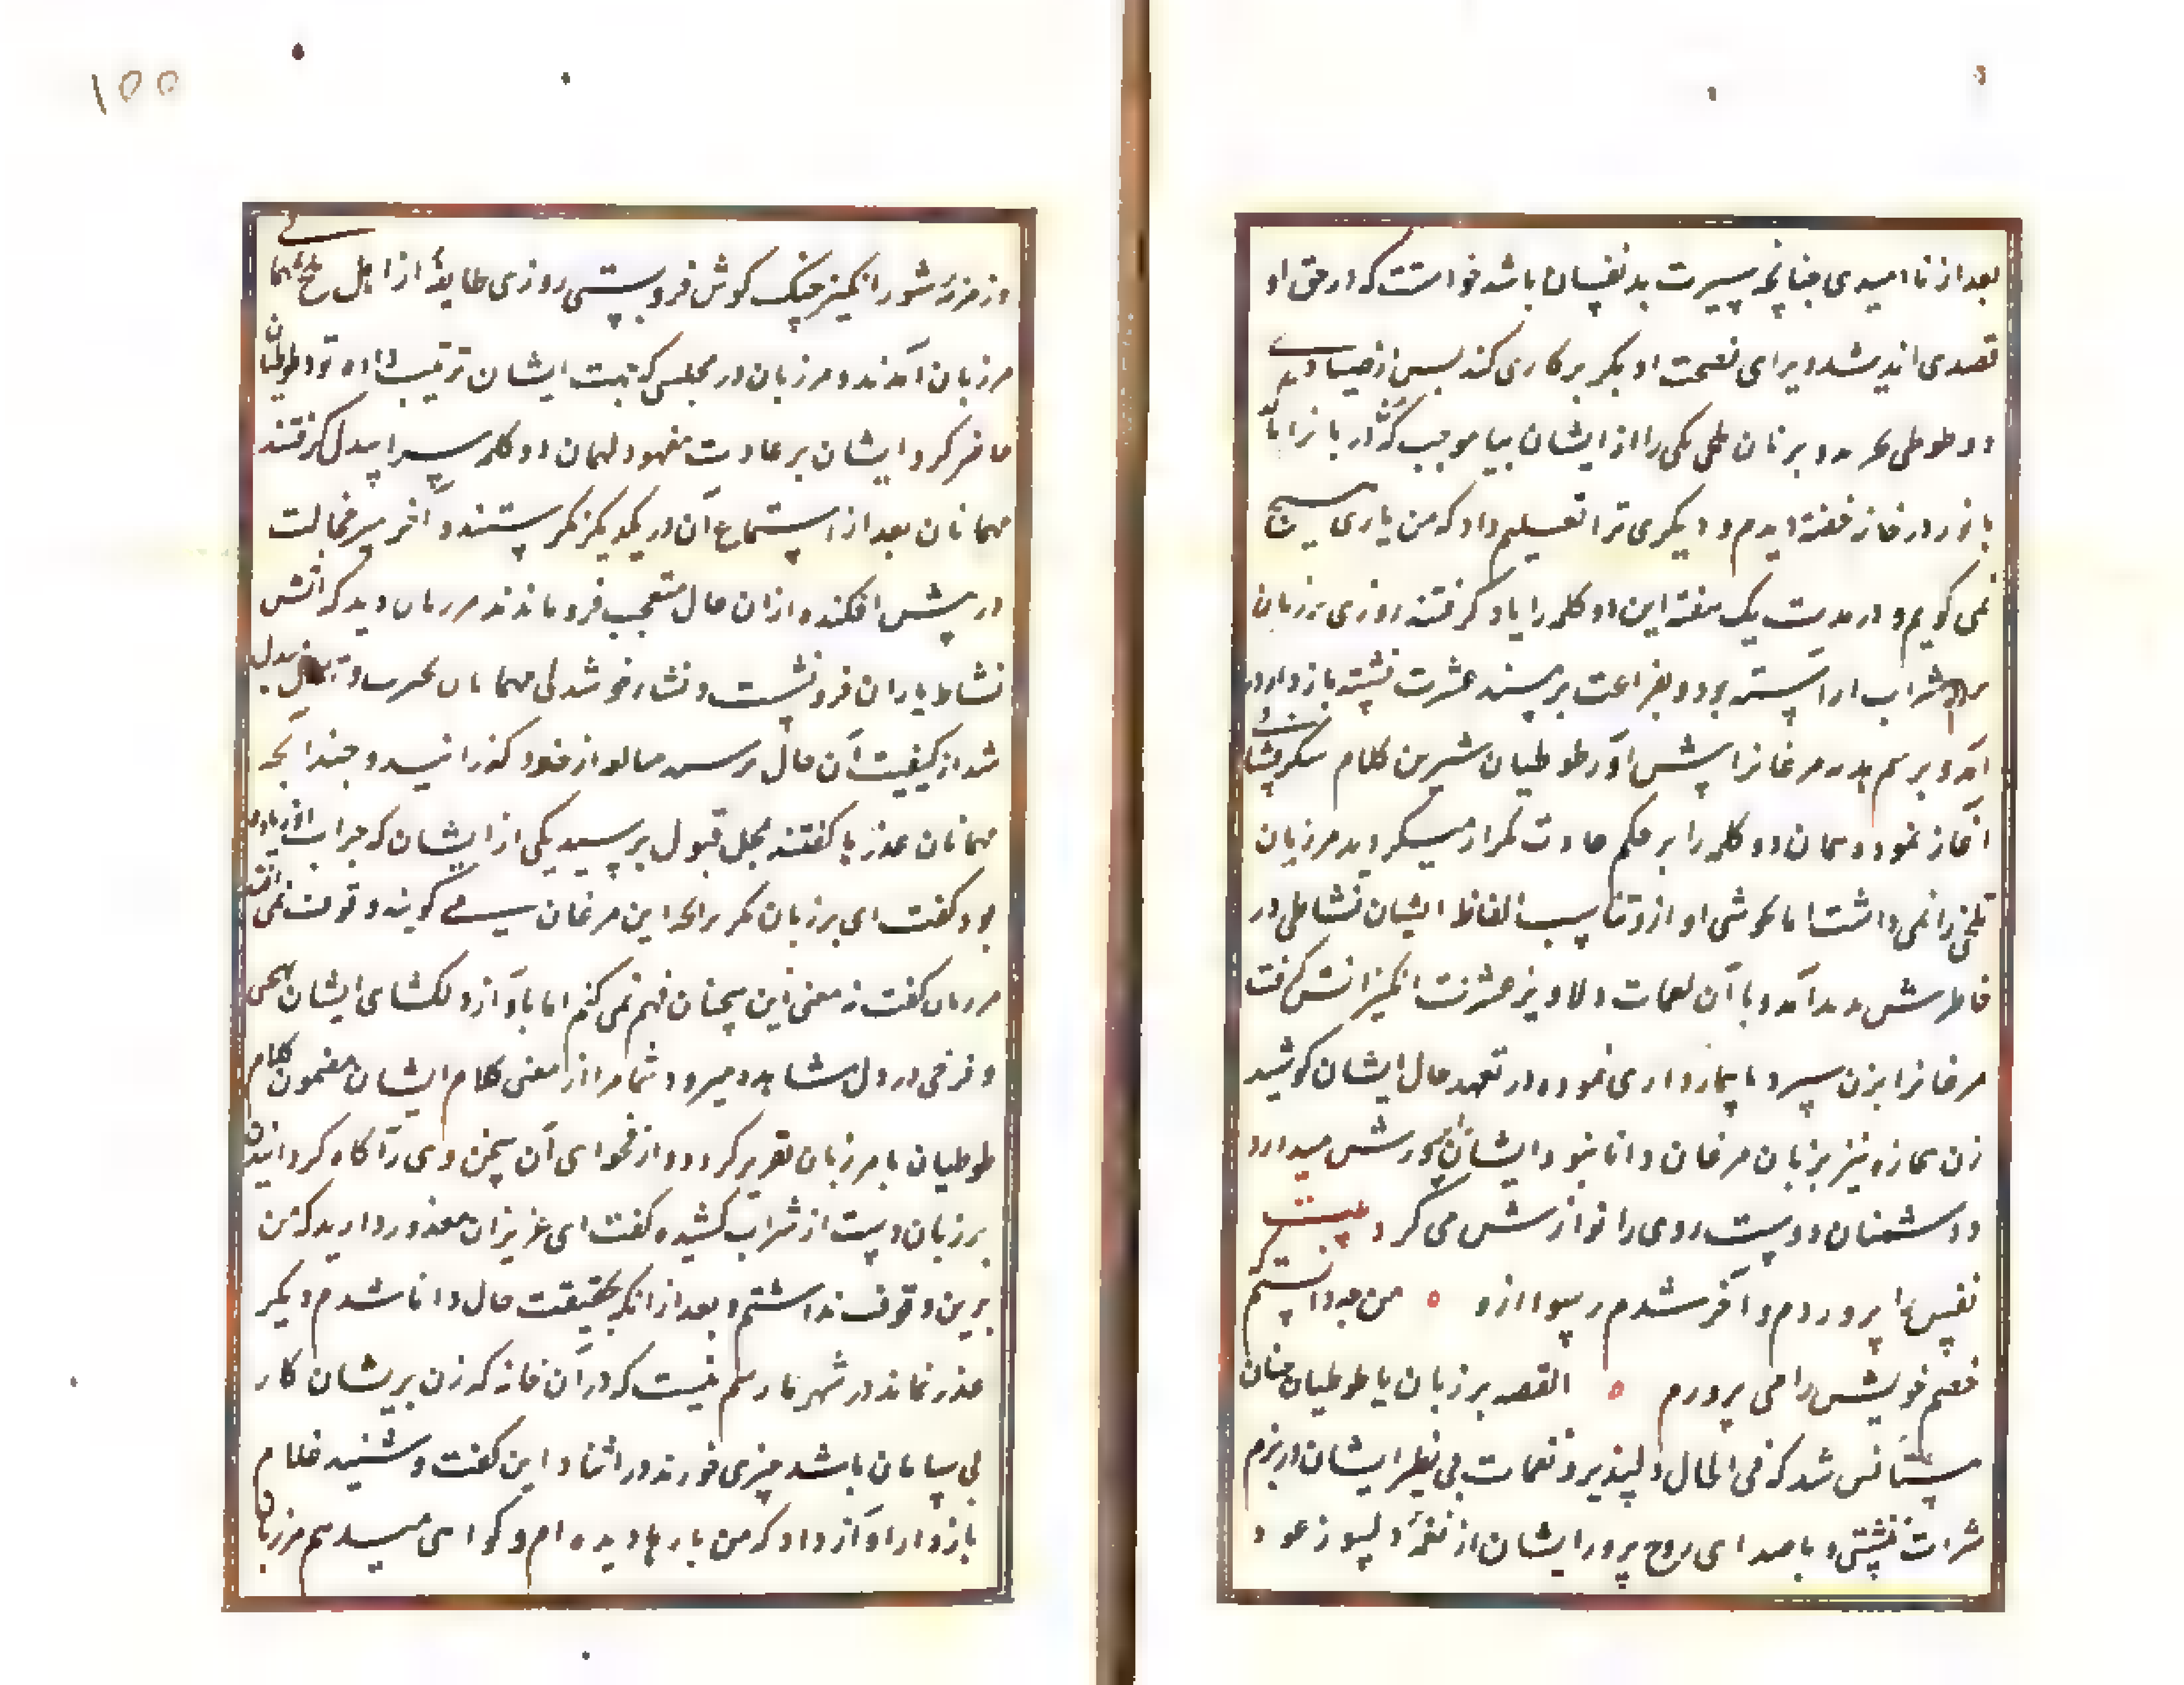 بعد از نا امیدی چنانچه سیرت بد نفسان باشد خواست که در حق او
قصدی اندیشد و برای نصحت او بکر بر کاری کند پس از صیادی
دو طوطی و بزبان یکی را از ایشان بیاموخت که در بانرا با
بانو در خانه خفته دیدم و دیگری را تعلیم داد که من باری هیچ
نمی گویم و در مدت یک هفته این دو کلمه را یاد گرفتند روزی مرزبان
شراب آراسته بود و بفراغت بر مسند عشرت نشسته بازدار در
آمد و برسم هدیه مرغانرا پیش آورد طوطیان شیرین کلام شکر فشانی
آغاز نمود و همان دو کلمه را بر حکم عادت تکرار میکردند مرزبان
زبان بلخی نمی دانشت اما بخوشی آواز و تناسب الفاظ ایشان نشاطی در
خاطرش پدید آمد و با آن نغمات دلاویز عشرت انگیز انس گرفت
مرغانرا بزن سپرد تا تیمارداری نموده در تعهد حال ایشان کوشید
زن بیچاره نیز بزبان مرغان دانا نبود ایشانرا پرورش میداد
و دشمنان دوست روی را نوازش می کرد بیت
نفس را پروردم و آخر شدم رسوا ازو ه من چه دانستم که
خصم خویش را می پرورم ه القصه مرزبان با طوطیان چنان
مستأنس شد که فی الحال دلپذیر و نغمات بی نظیر ایشان در بزم
شراب نشستی و با صدای روح پرور ایشان از نغمهٔ دلسوز عود
و زمزمهٔ شورانگیز چنگ گوش فرو بستی روزی طایفهٔ از اهل بلخ بمهمانی
مرزبان آمدند و مرزبان در مجلسی که بجهت ایشان ترتیب داده بود طوطیان
حاضر کرد ایشان بر عادت معهود همان دو کلمه سراییدن گرفتند
مهمانان بعد از استماع آن در یکدیگر نگرستند و آخر سر خجالت
در پیش افکنده از آن حال متعجب فرو ماندند مرزبان دید که آتش
نشاط یاران فرو نشست و نشاء خوشدلی مهمانان بحیرت و تأمل بدل
شد از کیفیت آن حال پرسید از خود گذرانید و چندانچه
مهمانان عذرها گفتند بمحل قبول نرسید یکی از ایشان که جرأت او زیاده
بود گفت ای مرزبان مگر برآنچه این مرغان می گویند وقوف نمی افتد
مرزبان گفت نه معنی این سخنان فهم نمی کنم اما باواز دلگشای ایشان بهجتی
و فرحی در دل مشاهده میرود شما مرا از معنی کلام ایشان مضمون کلام
طوطیان با مرزبان تقریر کرد و از فحوای آن سخن وی را آگاه گردانیدند
مرزبان دست از شراب کشیده گفت ای عزیزان معذور دارید که من
برین وقوف نداشتم و بعد از آنکه بحقیقت حال دانا شدم دیگر
عذر نماند در شهر ما رسم نیست که در آن خانه که زن پریشان کار
بی سامان باشد چیزی خورند در اثناء این گفت و شنید غلام
بازدار آواز داد که من بارها دیده ام و گواهی میدهم مرزبان
۱۵۵